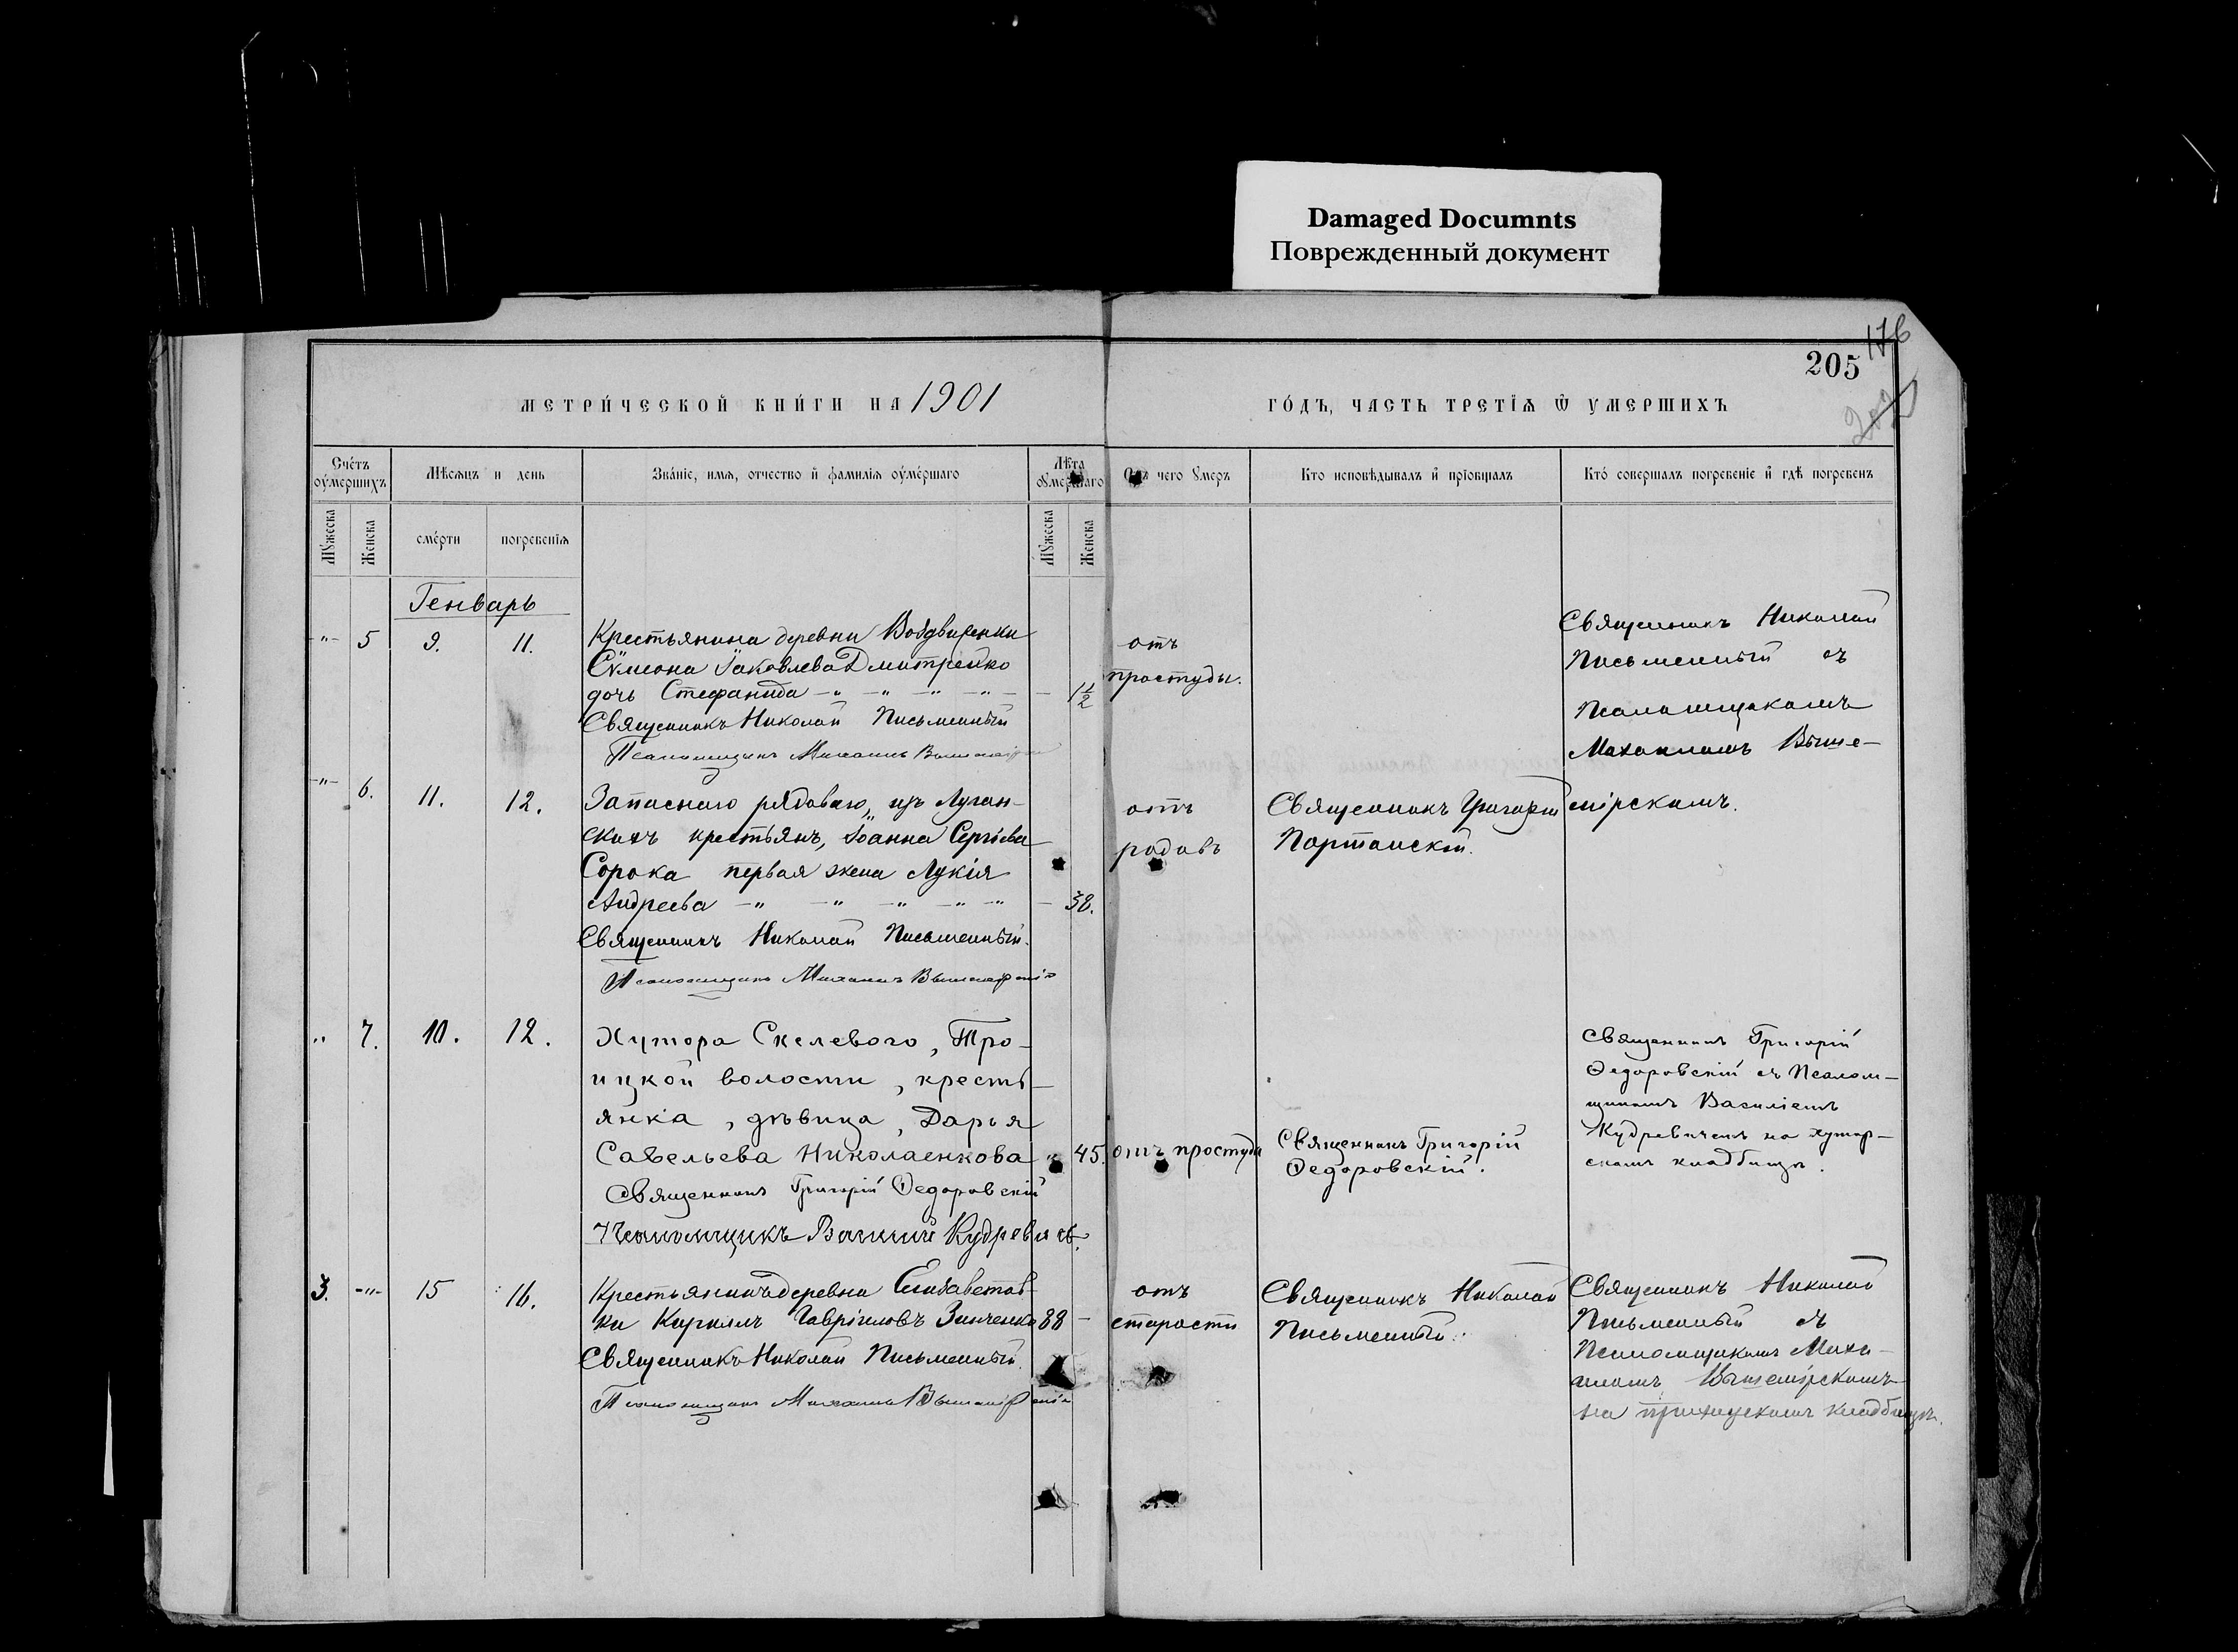 Damaged Documnts
Поврежденный документ
176
205
202
МЕТРИ́ЧЕСКОЙ КНИ́ГИ НА 1901
ГО́ДЪ, ЧАСТЬ ТРЕТІѦ Ѿ УМЕРШИХЪ
Сче́тъ оу҆ме́ршихъ
Мѣсяцъ и день
Зва́ніе, имѧ, отчество и҆ фамиліѧ оу҆ме́ршаго
Лѣта оумершаго
Отъ чего умеръ
Кто исповѣдывалъ и҆ прїобщалъ
Кто́ совершалъ погребеніе и҆ гдѣ погребенъ
Мужеска
Женска
сме́рти
погребеніѧ
Мужеска
Женска
Генварь
-"- 5 9. 11.
Крестьянина деревни Воздвиженки
Сѵмеона Іаковлева Дмитренко
дочь Стефанида -"- -"- -"- -"- - 1½
Священникъ Николай Письменный
Псаломщикъ Михаилъ Вышемірскій
отъ
простуды.
Священникъ Николай
Письменный съ
Псаломщикомъ
Михаиломъ Выше-
мірскимъ.
-"- 6. 11. 12.
Запаснаго рядоваго, изъ Луган-
скихъ крестьянъ, Іоанна Сергіева
Сорока первая жена Лукія
Андреева -"- -"- -"- -"- -"- - 38.
Священникъ Николай Письменный.
Псаломщикъ Михаилъ Вышемірскій
отъ
родовъ
Священникъ Григорій
Портанскій.
" 7. 10. 12.
Хутора Скелевого, Тро-
ицкой волости, кресть-
янка, дѣвица, Дарья
Савельева Николаенкова " 45.
Священникъ Григорій Ѳедоровскій
Псаломщикъ Василій Кудревичъ.
отъ простуды
Священникъ Григорій
Ѳедоровскій.
Священникъ Григорій
Ѳедоровскій съ Псалом-
щикомъ Василіемъ
Кудревичемъ на хутор-
скомъ кладбищѣ.
3. -"- 15 16.
Крестьянинъ деревни Елизаветов-
ки Кириллъ Гавріиловъ Зинченко 88 -
Священникъ Николай Письменный.
Псаломщикъ Михаилъ Вышемірскій
отъ
старости
Священникъ Николай
Письменный.
Священникъ Николай
Письменный съ
Псаломщикомъ Миха-
иломъ Вышемірскимъ
на приходскомъ кладбищѣ.